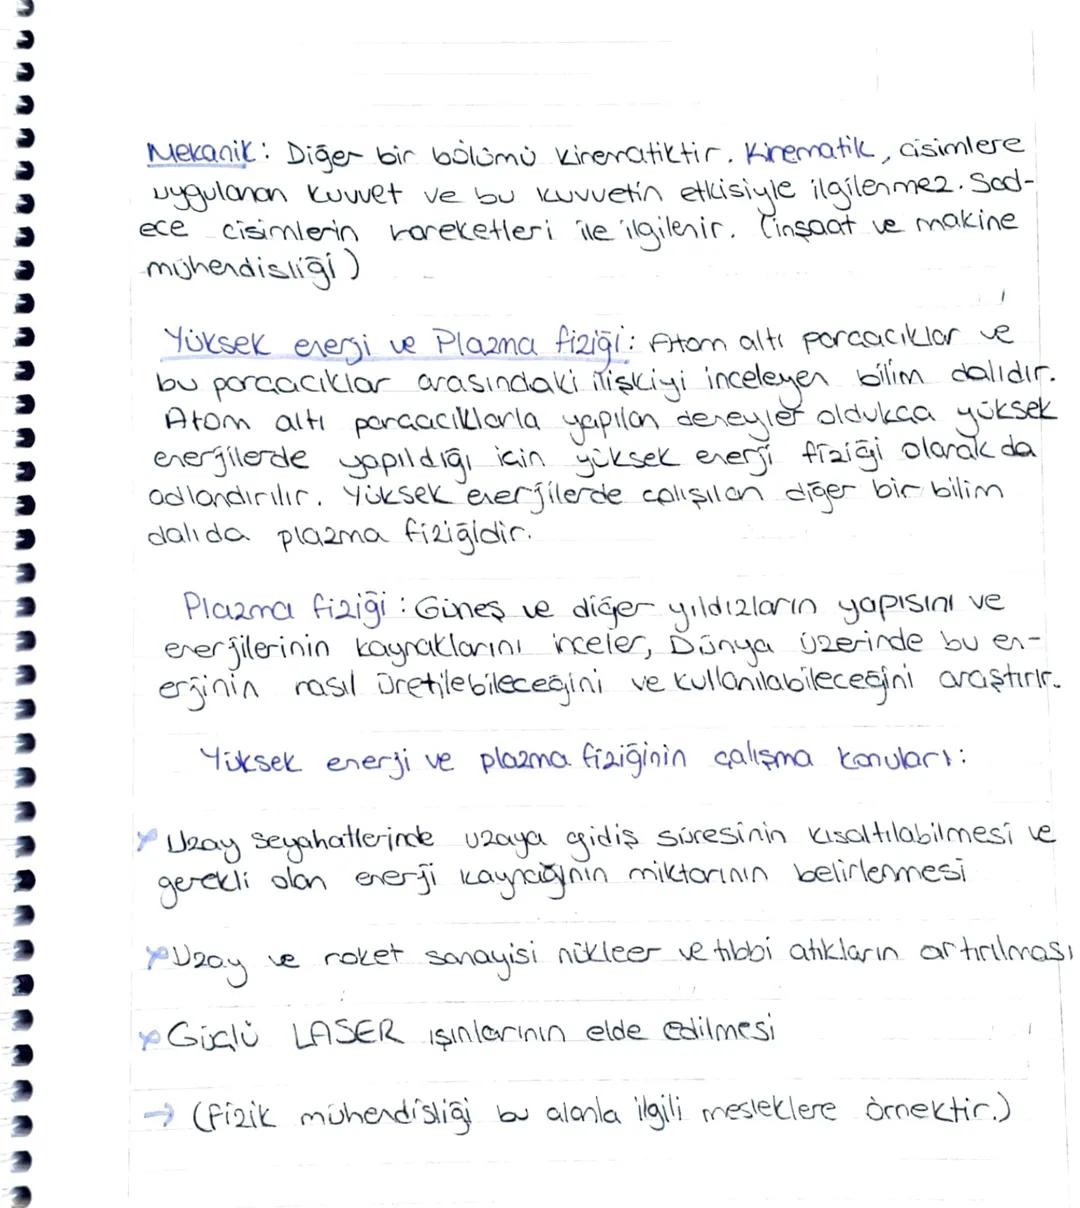 Mekanik: Diğer bir bölümü kinematiktir. Kinematik, cisimlere
uygulanan kuvvet ve bu kuvvetin etkisiyle ilgilenmez. Sad-
ece cisimlerin hareketleri ile ilgilenir. (inşaat ve makine
mühendisliği)
Yüksek enerji ve Plazma fiziği: Atom altı parçacıklar ve
bu parçacıklar arasındaki ilişkiyi inceleyen bilim dalıdır.
Atom altı parçacıklarla yapılan deneyler oldukça yüksek
enerjilerde yapıldığı için yüksek enerji fiziği olarak da
adlandırılır. Yüksek enerjilerde çalışılan diğer bir bilim
dalıda plazma fiziğidir.
Plazma fiziği: Güneş ve diğer yıldızların yapısını ve
enerjilerinin kaynaklarını inceler, Dünya üzerinde bu en-
erjinin nasıl üretilebileceğini ve kullanılabileceğini araştırır.
Yüksek enerji ve plazma fiziğinin çalışma konuları:
Uzay seyahatlerinde uzaya gidiş süresinin kısaltılabilmesi ve
gerekli olan enerji kaynağının miktarının belirlenmesi
Uzay ve roket sanayisi nükleer ve tıbbi atıkların artırılması
Güçlü LASER ışınlarının elde edilmesi
→ (fizik mühendisliği bu alanla ilgili mesleklere örnektir.)